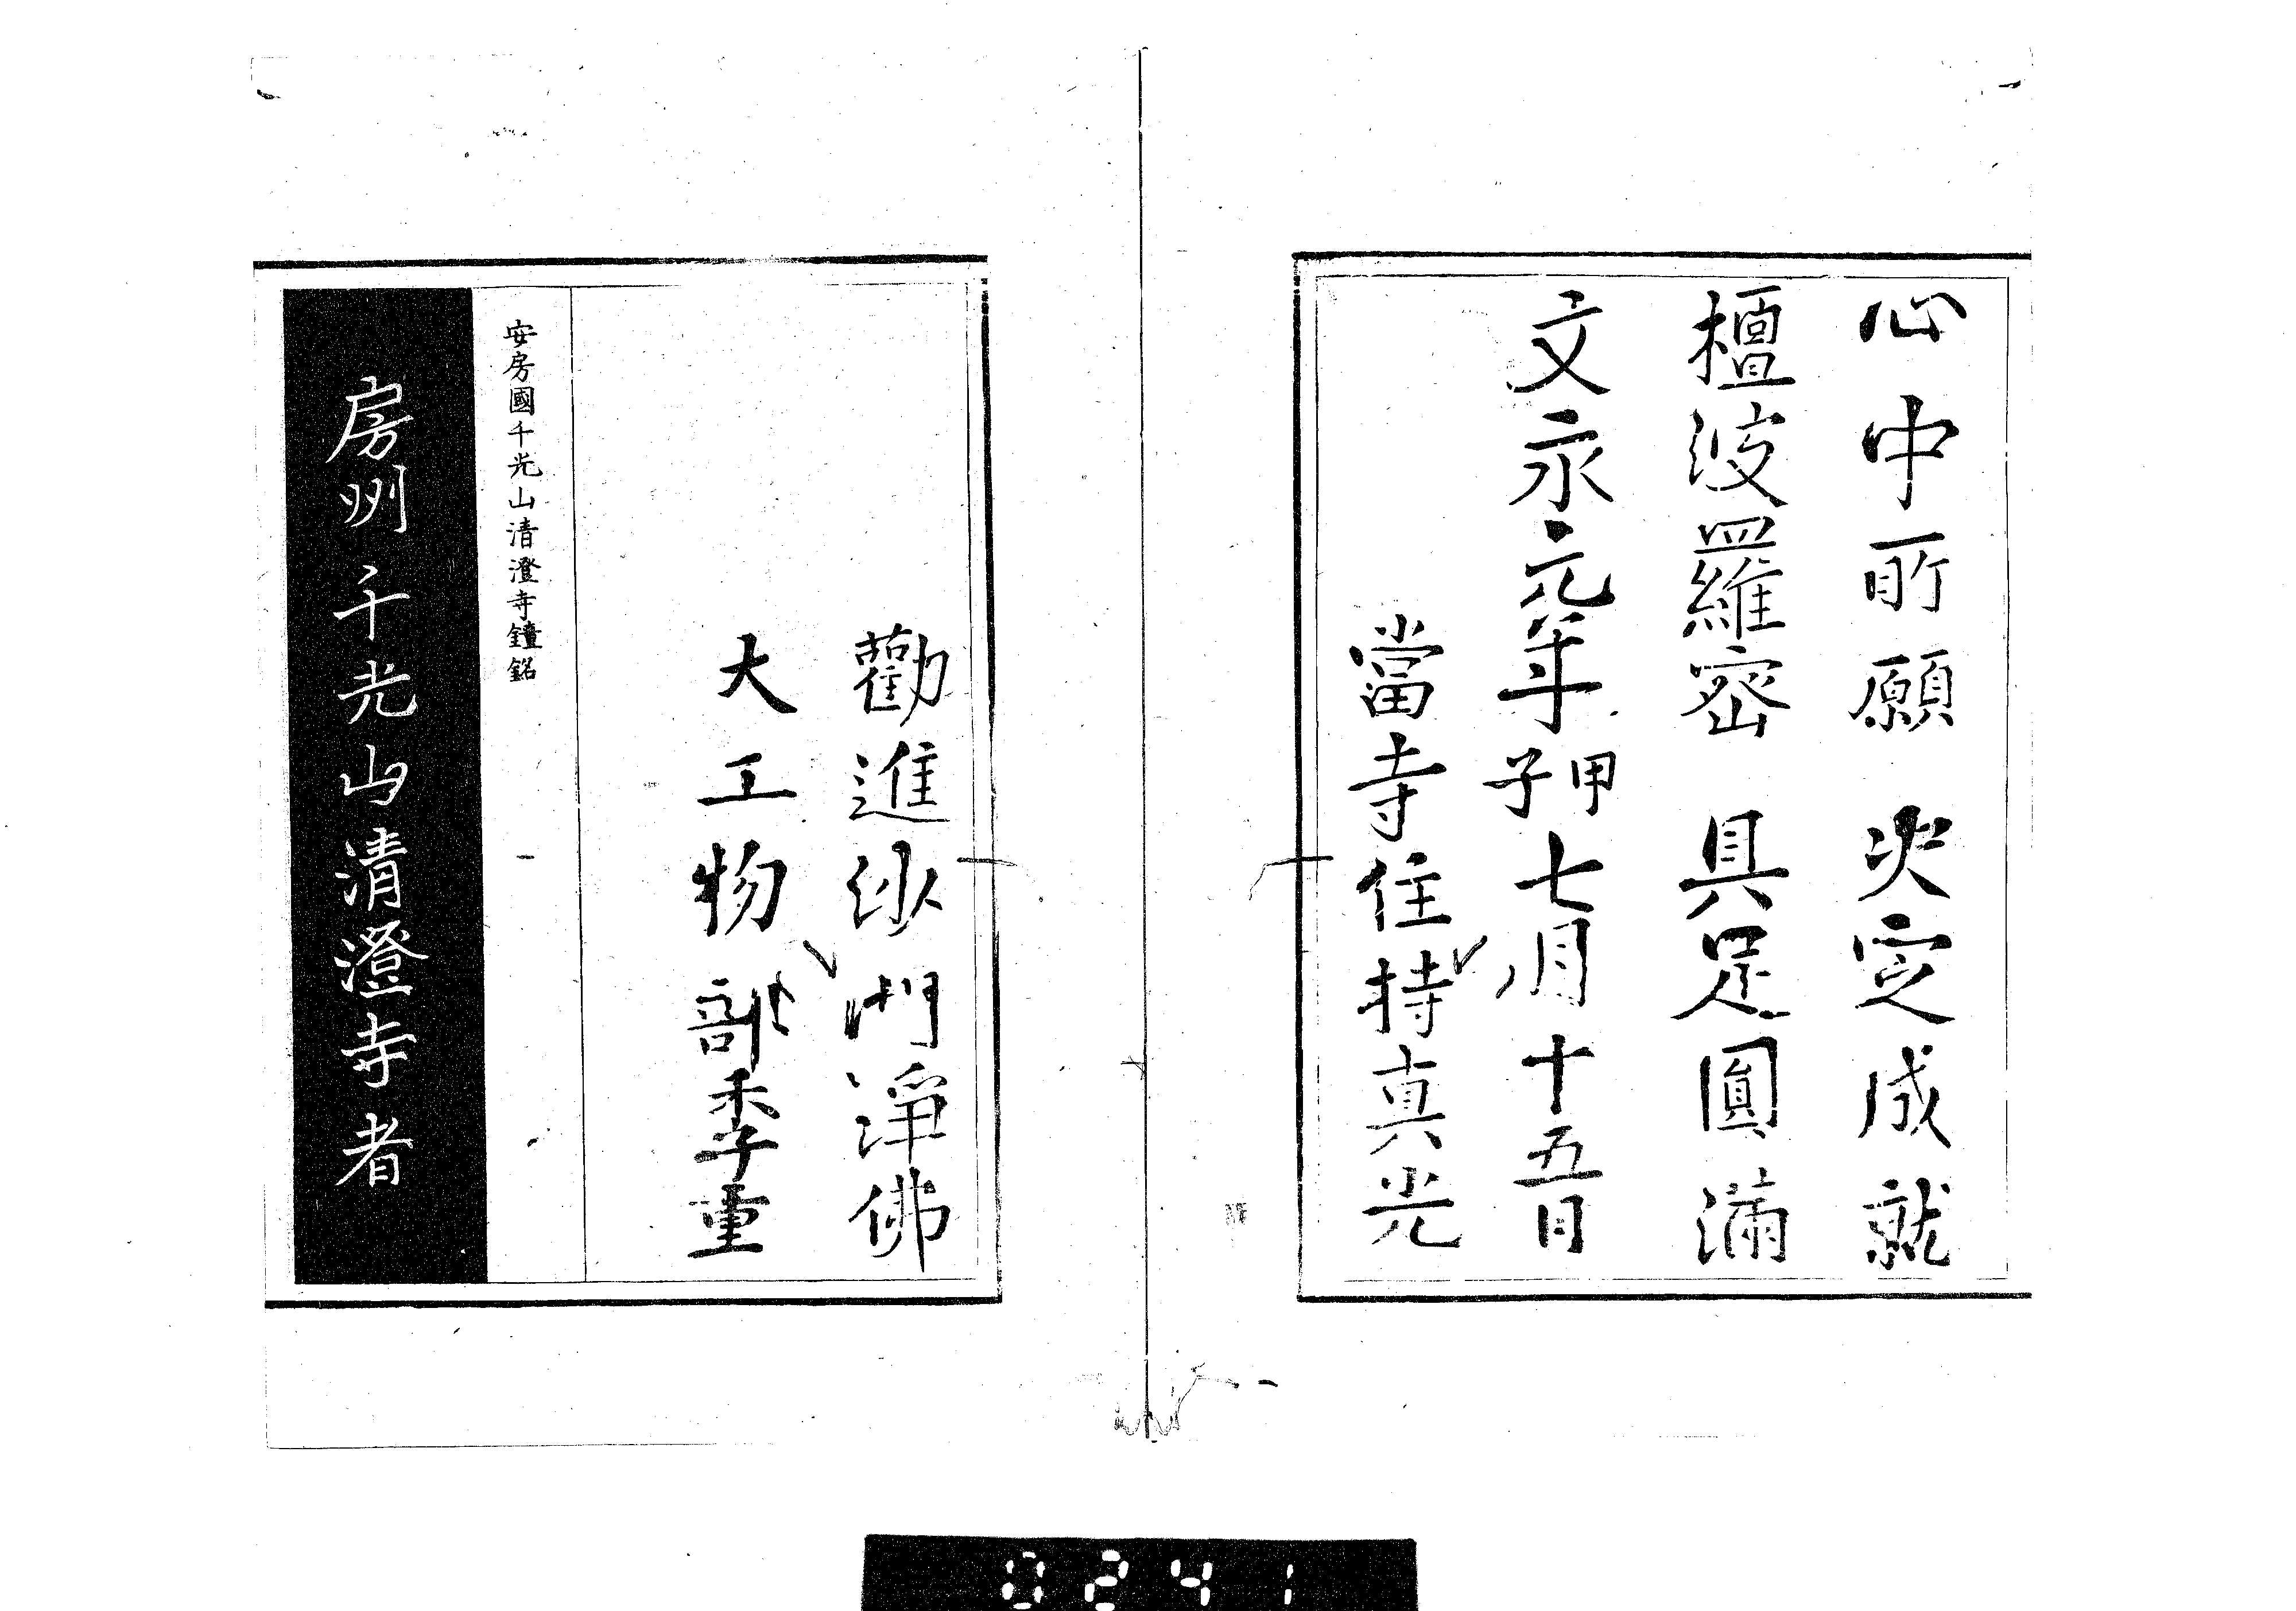 心中所願決定成就
檀波羅密具足圓滿
文永元年甲子七月十五日
當寺住持真光
勸進沙門淨佛
大工物部季重
安房國千光山清澄寺鐘銘
房州千光山清澄寺者
0241